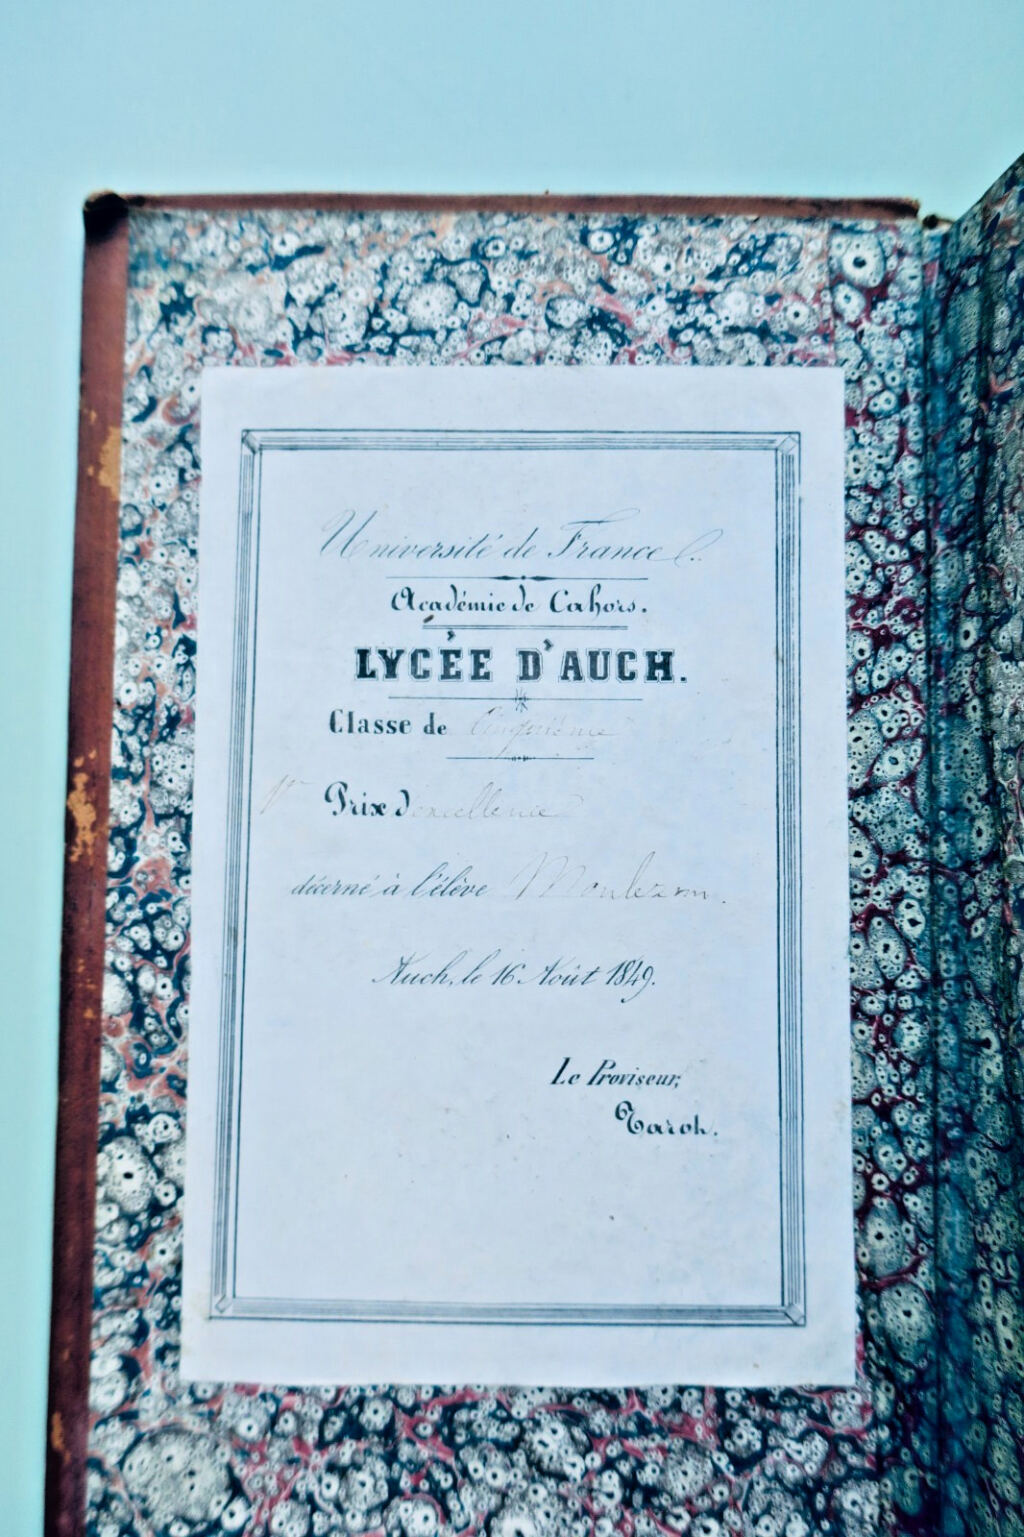 Université de France
Académie de Cahors.
LYCÉE D'AUCH.
Classe de Cinquième
1er Prix d'excellence
décerné à l'élève
Auch, le 16 Août 1849.
Le Proviseur,